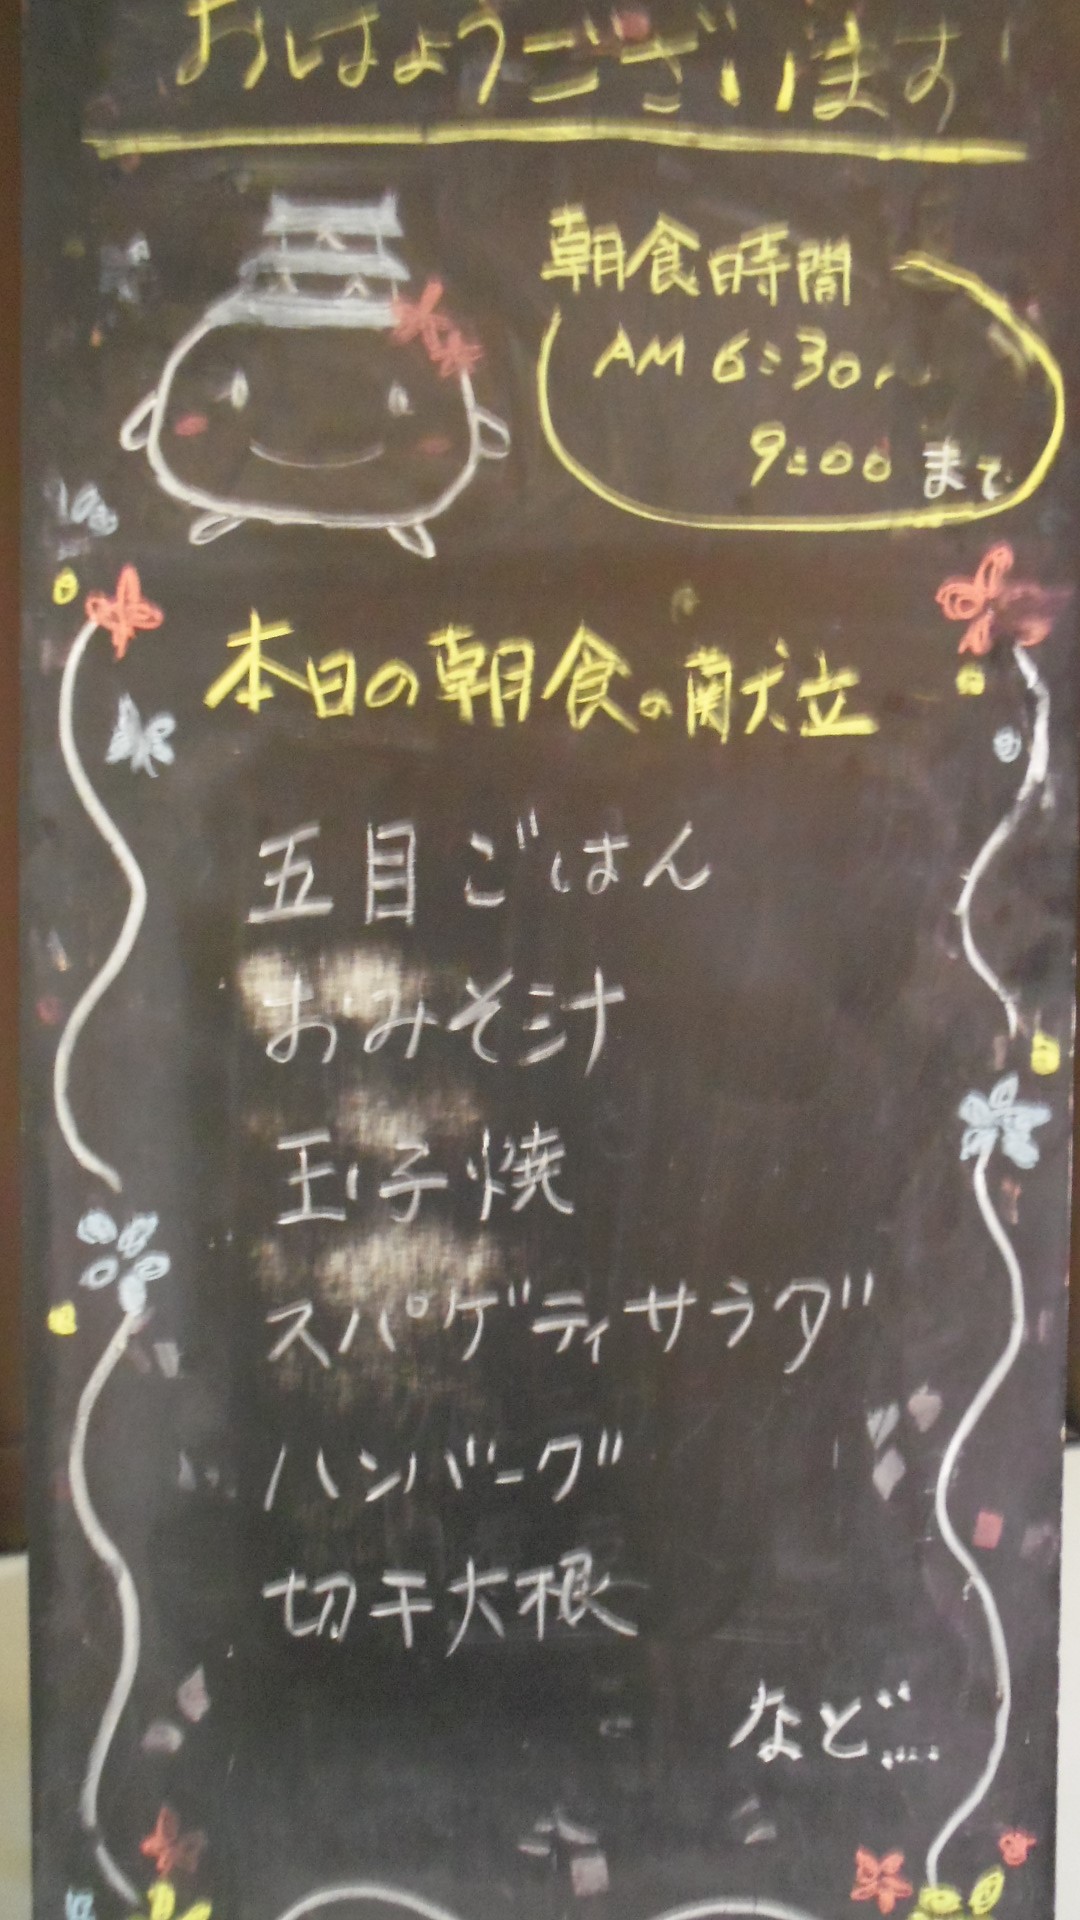 おはようございます
朝食時間
AM 6:30~
9:00 まで
本日の朝食の献立
五目ごはん
おみそ汁
玉子焼
スパゲティサラダ
ハンバーグ
切干大根
など……